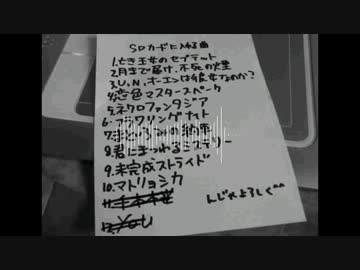 SDカードに入れる曲
1.亡き王女のセプテット
2.月まで届け、不死の煙
3.U.N.オーエンは彼女なのか?
4.恋色マスタースパーク
5.ネクロファンタジア
6.フラワリングナイト
7.
8.君にまつわるミステリー
9.未完成ストライド
10.マトリョシカ
んじゃよろしく^^